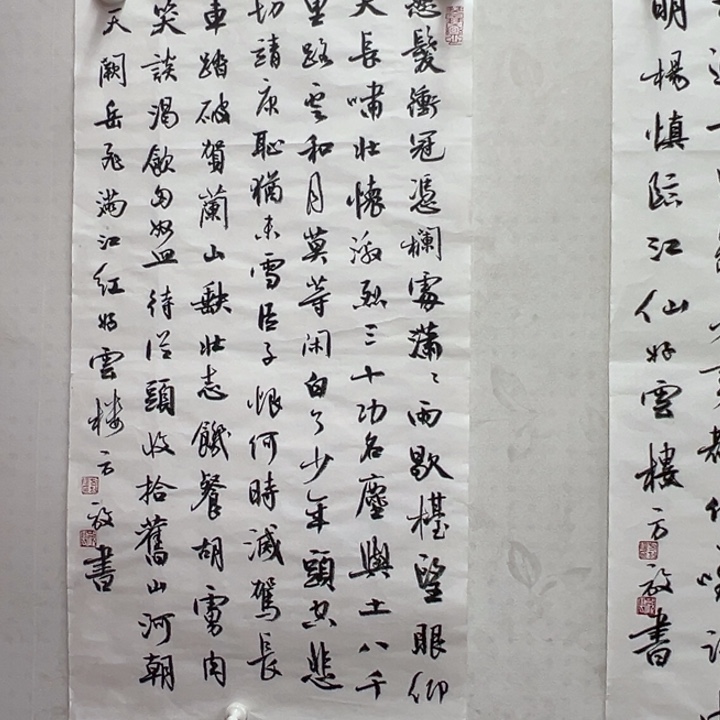 明楊慎臨江仙好雲樓方書
怒髮衝冠憑欄處瀟〻雨歇檯望眼仰
天長嘯壯懷激烈三十功名塵與土八千
里路雲和月莫等闲白了少年頭空悲
切靖康恥猶未雪臣子恨何時滅駕長
車踏破賀蘭山缺壯志饑餐胡虜肉
笑談渴飲匈奴血待從頭收拾舊山河朝
天闕岳飛滿江紅好雲楼方書